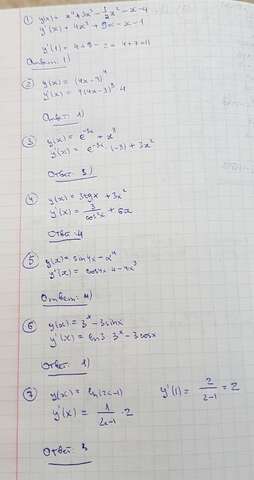 ① y(x) = x⁴ + 3x³ - 1/2 x² - x - 4
y'(x) = 4x³ + 9x² - x - 1
y'(1) = 4 + 9 - 2 = 4 + 7 = 11
Ответ: 1)
② y(x) = (4x - 9)⁴
Ответ: 1)
③ y(x) = e⁻³ˣ + x³
y'(x) = e⁻³ˣ · (-3) + 3x²
Ответ: 3)
④ y(x) = 3tgx + 3x²
y'(x) = 3/cos²x + 6x
Ответ: 4
⑤ y(x) = sin4x - x⁴
y'(x) = cos4x · 4 - 4x³
Ответ: 4)
⑥ y(x) = 3ˣ - 3sinx
y'(x) = ln3 · 3ˣ - 3cosx
Ответ: 1)
⑦ y(x) = ln(2x-1) y'(1) = 2/(2-1) = 2
y'(x) = 1/(2x-1) · 2
Ответ: